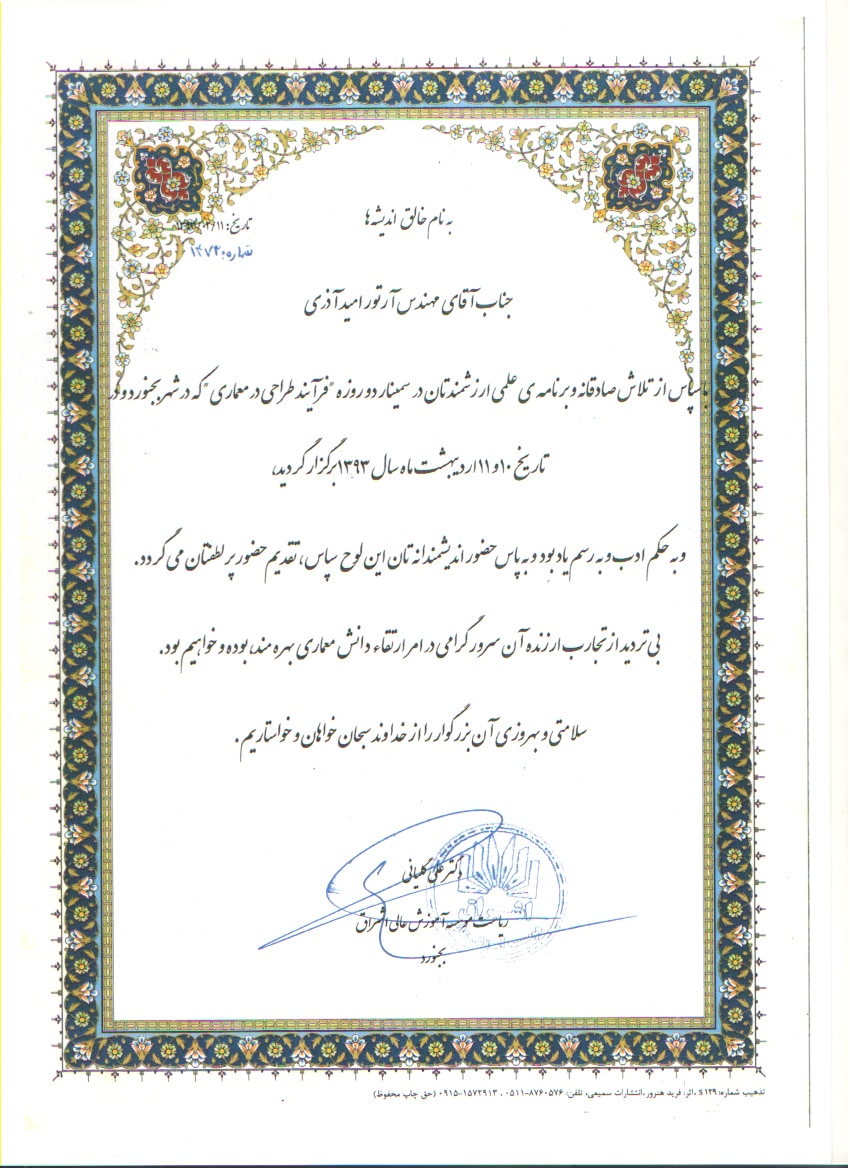 به نام خالق اندیشه‌ها
تاریخ: ۲/۱۱
شماره: ۱۴۷۲
جناب آقای مهندس آرتور امید آذری
با سپاس از تلاش صادقانه و برنامه ی علمی ارزشمندتان در سمینار دو روزه "فرآیند طراحی در معماری" که در شهر بجنورد و در
تاریخ ۱۰ و ۱۱ اردیبهشت ماه سال ۱۳۹۳ برگزار گردید،
و به حکم ادب و به رسم یادبود و به پاس حضور اندیشمندانه تان این لوح سپاس، تقدیم حضور پر لطفتان می گردد.
بی تردید از تجارب ارزنده آن سرور گرامی در امر ارتقاء دانش معماری بهره مند بوده و خواهیم بود.
سلامتی و بهروزی آن بزرگوار را از خداوند سبحان خواهان و خواستاریم.
دکتر علی گلیانی
ریاست موسسه آموزش عالی اشراق
بجنورد
تذهیب شماره: S۱۲۹ ،اثر: فرید هنرور،انتشارات سمیعی، تلفن: ۸۷۶۰۵۷۶-۰۵۱۱ ، ۱۵۷۲۹۱۳-۰۹۱۵ (حق چاپ محفوظ)